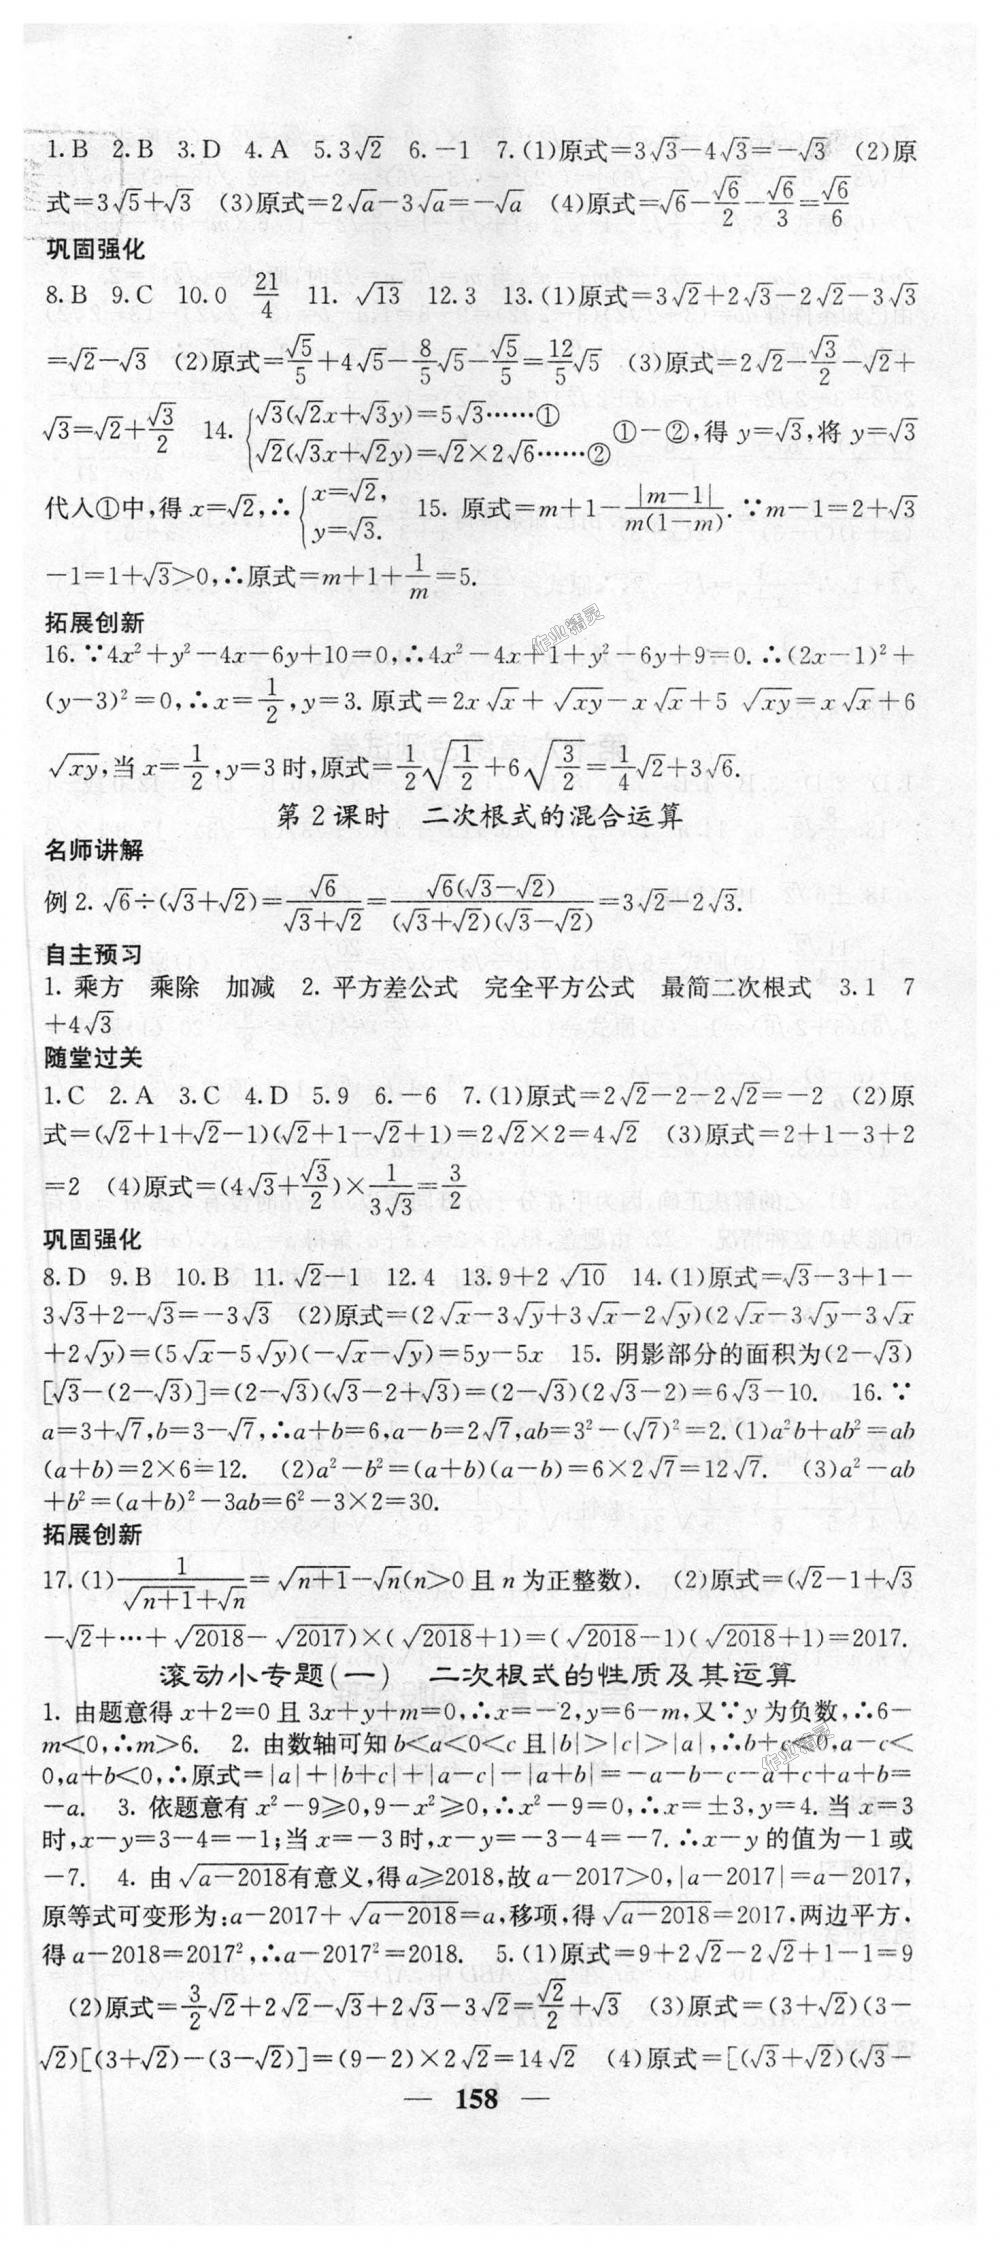 1.B 2.B 3.D 4.A 5.3√2 6.−1 7.(1)原式=3√3−4√3=−√3 (2)原
式=3√5+√3 (3)原式=2√a−3√a=−√a (4)原式=√6−√6/2−√6/3=√6/6
巩固强化
8.B 9.C 10.0 21/4 11. √13 12.3 13.(1)原式=3√2+2√3−2√2−3√3
=√2−√3 (2)原式=√5/5+4√5−8/5√5−√5/5=12/5√5 (3)原式=2√2−√3/2−√2+
√3=√2+√3/2 14. {√3(√2x+√3y)=5√3……① √2(√3x+√2y)=√2×2√6……② ①−②,得 y=√3,将 y=√3
代入①中,得 x=√2,∴{x=√2, y=√3. 15. 原式=m+1−|m−1|/m(1−m).∵m−1=2+√3
−1=1+√3>0,∴原式=m+1+1/m=5.
拓展创新
16.∵4x²+y²−4x−6y+10=0,∴4x²−4x+1+y²−6y+9=0.∴(2x−1)²+
(y−3)²=0,∴x=1/2,y=3.原式=2x√x+√xy−x√x+5√xy=x√x+6
√xy,当 x=1/2,y=3时,原式=1/2√(1/2)+6√(3/2)=1/4√2+3√6.
第2课时 二次根式的混合运算
名师讲解
例2.√6÷(√3+√2)=√6/(√3+√2)=√6(√3−√2)/(√3+√2)(√3−√2)=3√2−2√3.
自主预习
1. 乘方 乘除 加减 2. 平方差公式 完全平方公式 最简二次根式 3.1 7
+4√3
随堂过关
1.C 2.A 3.C 4.D 5.9 6.−6 7.(1)原式=2√2−2−2√2=−2 (2)原
式=(√2+1+√2−1)(√2+1−√2+1)=2√2×2=4√2 (3)原式=2+1−3+2
=2 (4)原式=(4√3+√3/2)×1/3√3=3/2
巩固强化
8.D 9.B 10.B 11.√2−1 12.4 13.9+2√10 14.(1)原式=√3−3+1−
3√3+2−√3=−3√3 (2)原式=(2√x−3√y+3√x−2√y)(2√x−3√y−3√x
+2√y)=(5√x−5√y)(−√x−√y)=5y−5x 15. 阴影部分的面积为(2−√3)
[√3−(2−√3)]=(2−√3)(√3−2+√3)=(2−√3)(2√3−2)=6√3−10. 16.∵
a=3+√7,b=3−√7,∴a+b=6,a−b=2√7,ab=3²−(√7)²=2.(1)a²b+ab²=ab
(a+b)=2×6=12. (2)a²−b²=(a+b)(a−b)=6×2√7=12√7. (3)a²−ab
+b²=(a+b)²−3ab=6²−3×2=30.
拓展创新
17.(1)1/(√(n+1)+√n)=√(n+1)−√n(n>0且n为正整数). (2)原式=(√2−1+√3
−√2+…+√2018−√2017)×(√2018+1)=(√2018−1)(√2018+1)=2017.
滚动小专题(一) 二次根式的性质及其运算
1. 由题意得 x+2=0 且 3x+y+m=0,∴x=−2,y=6−m,又∵y为负数,∴6−
m<0,∴m>6. 2. 由数轴可知 b<a<0<c 且|b|>|c|>|a|,∴b+c<0,a−c<
0,a+b<0,∴原式=|a|+|b+c|+|a−c|−|a+b|=−a−b−c−a+c+a+b=
−a. 3. 依题意有 x²−9≥0,9−x²≥0,∴x²−9=0,∴x=±3,y=4.当 x=3
时,x−y=3−4=−1;当 x=−3时,x−y=−3−4=−7.∴x−y的值为−1或
−7. 4. 由√(a−2018)有意义,得a≥2018,故a−2017>0,|a−2017|=a−2017,
原等式可变形为:a−2017+√(a−2018)=a,移项,得√(a−2018)=2017,两边平方,
得 a−2018=2017²,∴a−2017²=2018. 5.(1)原式=9+2√2−2√2+1−1=9
(2)原式=3/2√2+2√2−√3+2√3−3√2=√2/2+√3 (3)原式=(3+√2)(3−
√2)[(3+√2)−(3−√2)]=(9−2)×2√2=14√2 (4)原式=[(√3+√2)(√3−
— 158 —
作业精灵
作业精灵